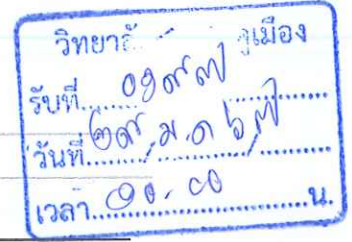 วิทยาลั ภูเมือง
รับที่ ๐๑๙๗
วันที่ ๒๙ ม.ค ๖๗
เวลา ๑๐.๐๐ น.